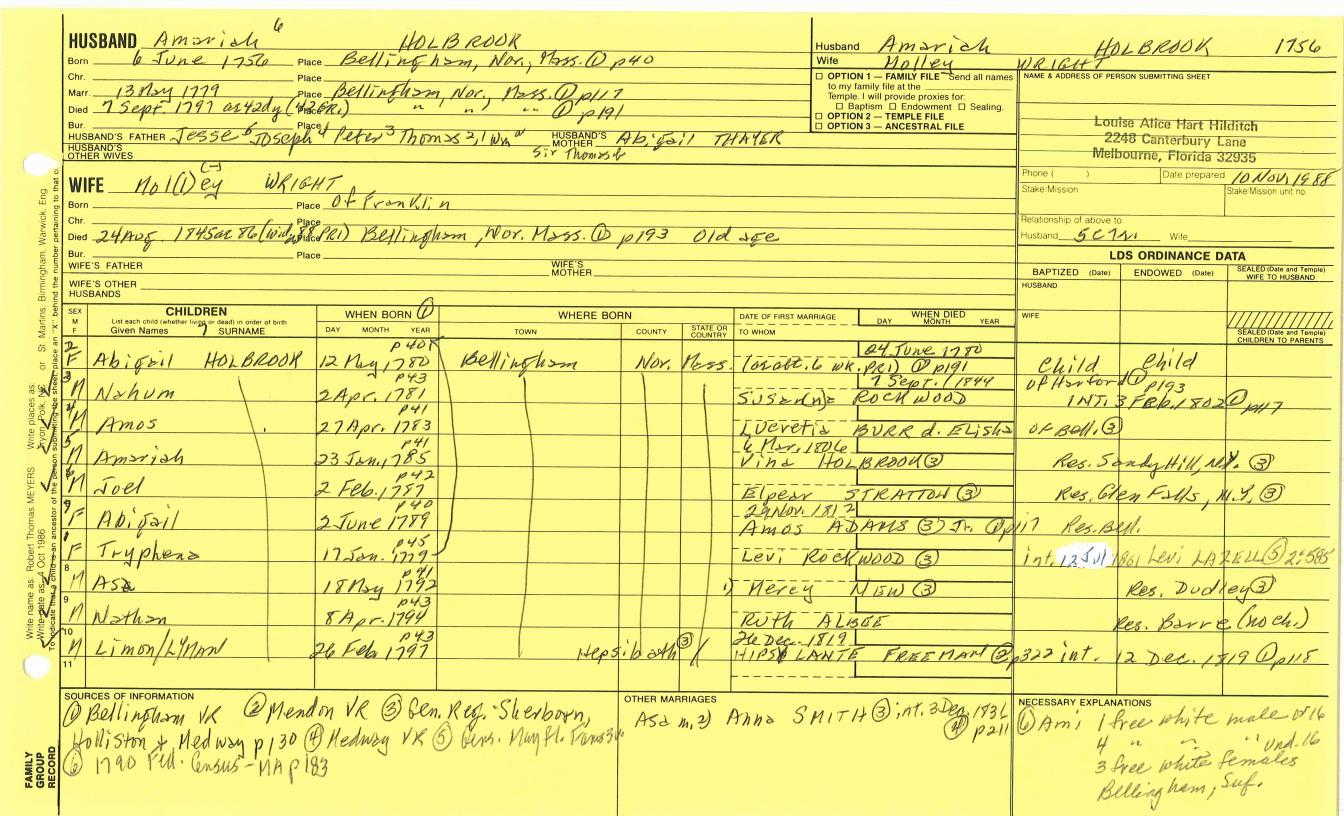 HUSBAND Amariah 6 HOLBROOK
Born 6 June 1756 Place Bellingham, Nor., Mass. ① p40
Chr. Place
Marr. 13 May 1779 Place Bellingham, Nor. Mass. ① p117
Died 7 Sept. 1797 ae 42dy (42 GR.) Place " " " ① p191
Bur. Place
HUSBAND'S FATHER Jesse 5 Joseph 4 Peter 3 Thomas 2, 1 Wm HUSBAND'S MOTHER Abigail THAYER
HUSBAND'S OTHER WIVES Sir Thomas
Husband Amariah HOLBROOK 1756
Wife Molley WRIGHT
☐ OPTION 1 — FAMILY FILE Send all names
to my family file at the
Temple. I will provide proxies for:
☐ Baptism ☐ Endowment ☐ Sealing.
☐ OPTION 2 — TEMPLE FILE
☐ OPTION 3 — ANCESTRAL FILE
NAME & ADDRESS OF PERSON SUBMITTING SHEET
Louise Alice Hart Hilditch
2248 Canterbury Lane
Melbourne, Florida 32935
Phone ( ) Date prepared 10 Nov, 1988
Stake/Mission Stake/Mission unit no.
Relationship of above to:
Husband 5C7N Wife
WIFE Mol(l)ey (-) WRIGHT
Born Place Of Franklin
Chr. Place
Died 24 Aug. 1845 ae 86 (wid, 88 PRI) Place Bellingham, Nor. Mass. ① p193 Old age
Bur. Place
WIFE'S FATHER WIFE'S MOTHER
WIFE'S OTHER HUSBANDS
LDS ORDINANCE DATA
BAPTIZED (Date) ENDOWED (Date) SEALED (Date and Temple) WIFE TO HUSBAND
HUSBAND
WIFE
SEALED (Date and Temple) CHILDREN TO PARENTS
SEX M F
CHILDREN
List each child (whether living or dead) in order of birth
Given Names 7 SURNAME
WHEN BORN ①
DAY MONTH YEAR
WHERE BORN
TOWN COUNTY STATE OR COUNTRY
DATE OF FIRST MARRIAGE
TO WHOM
WHEN DIED
DAY MONTH YEAR
p40 24 June 1780
2 F Abigail HOLBROOK 12 May, 1780 Bellingham Nor. Mass. (os at t. 6 wk. PRI) ① p191 Child Child
p43 7 Sept. 1844 of Hanford ① p193
3 M Nahum 2 Apr. 1781 Susan(n)a ROCKWOOD INT. 3 Feb. 1802 ① p117
p41
4 M Amos 27 Apr. 1783 Lucretia BURR d. Elisha of Bell. ③
p41 6 Mar. 1806
5 M Amariah 23 Jan, 1785 Vina HOLBROOK ③ Res. Sandy Hill, N.Y. ③
p42
6 M Joel 2 Feb. 1787 Elpear STRATTON ③ Res. Glen Falls, N.Y. ③
p40 29 Nov. 1812
F Abigail 2 June 1789 Amos ADAMS ③ Jr. ① p117 Res. Bell.
p45
1 F Tryphena 17 Jan. 1779 Levi ROCKWOOD ③ int. 12 Jul 1801 Levi LAZELL ⑤ 2:585
p41
8 M Asa 18 May 1792 1) Mercy NEW ③ Res. Dudley ③
p43
9 M Nathan 8 Apr. 1794 Ruth ALBEE Res. Barre (no ch.)
p43 26 Dec. 1819
10 M Limon/LYMAN 26 Feb 1797 Hepsibath ③ HIPSY LANTE FREEMAN ② p322 int. 12 Dec. 1819 ① p118
11
SOURCES OF INFORMATION
① Bellingham VR ② Mendon VR ③ Gen. Reg. Sherborn,
Holliston & Medway p130 ④ Medway VR ⑤
⑥ 1790 Fed. Census - MA p183
OTHER MARRIAGES
Asa m. 2) Anna SMITH ③ int. 3 Dec, 1836
④ p211
NECESSARY EXPLANATIONS
⑥ Am: 1 free white male of 16
4 " " " und. 16
3 free white females
Bellingham, Suf.
FAMILY GROUP RECORD
Write name as: Robert Thomas MEYERS Write places as: Tryon, Polk, NC or St Martins, Birmingham, Warwick, Eng
Write date as: 4 Oct 1986